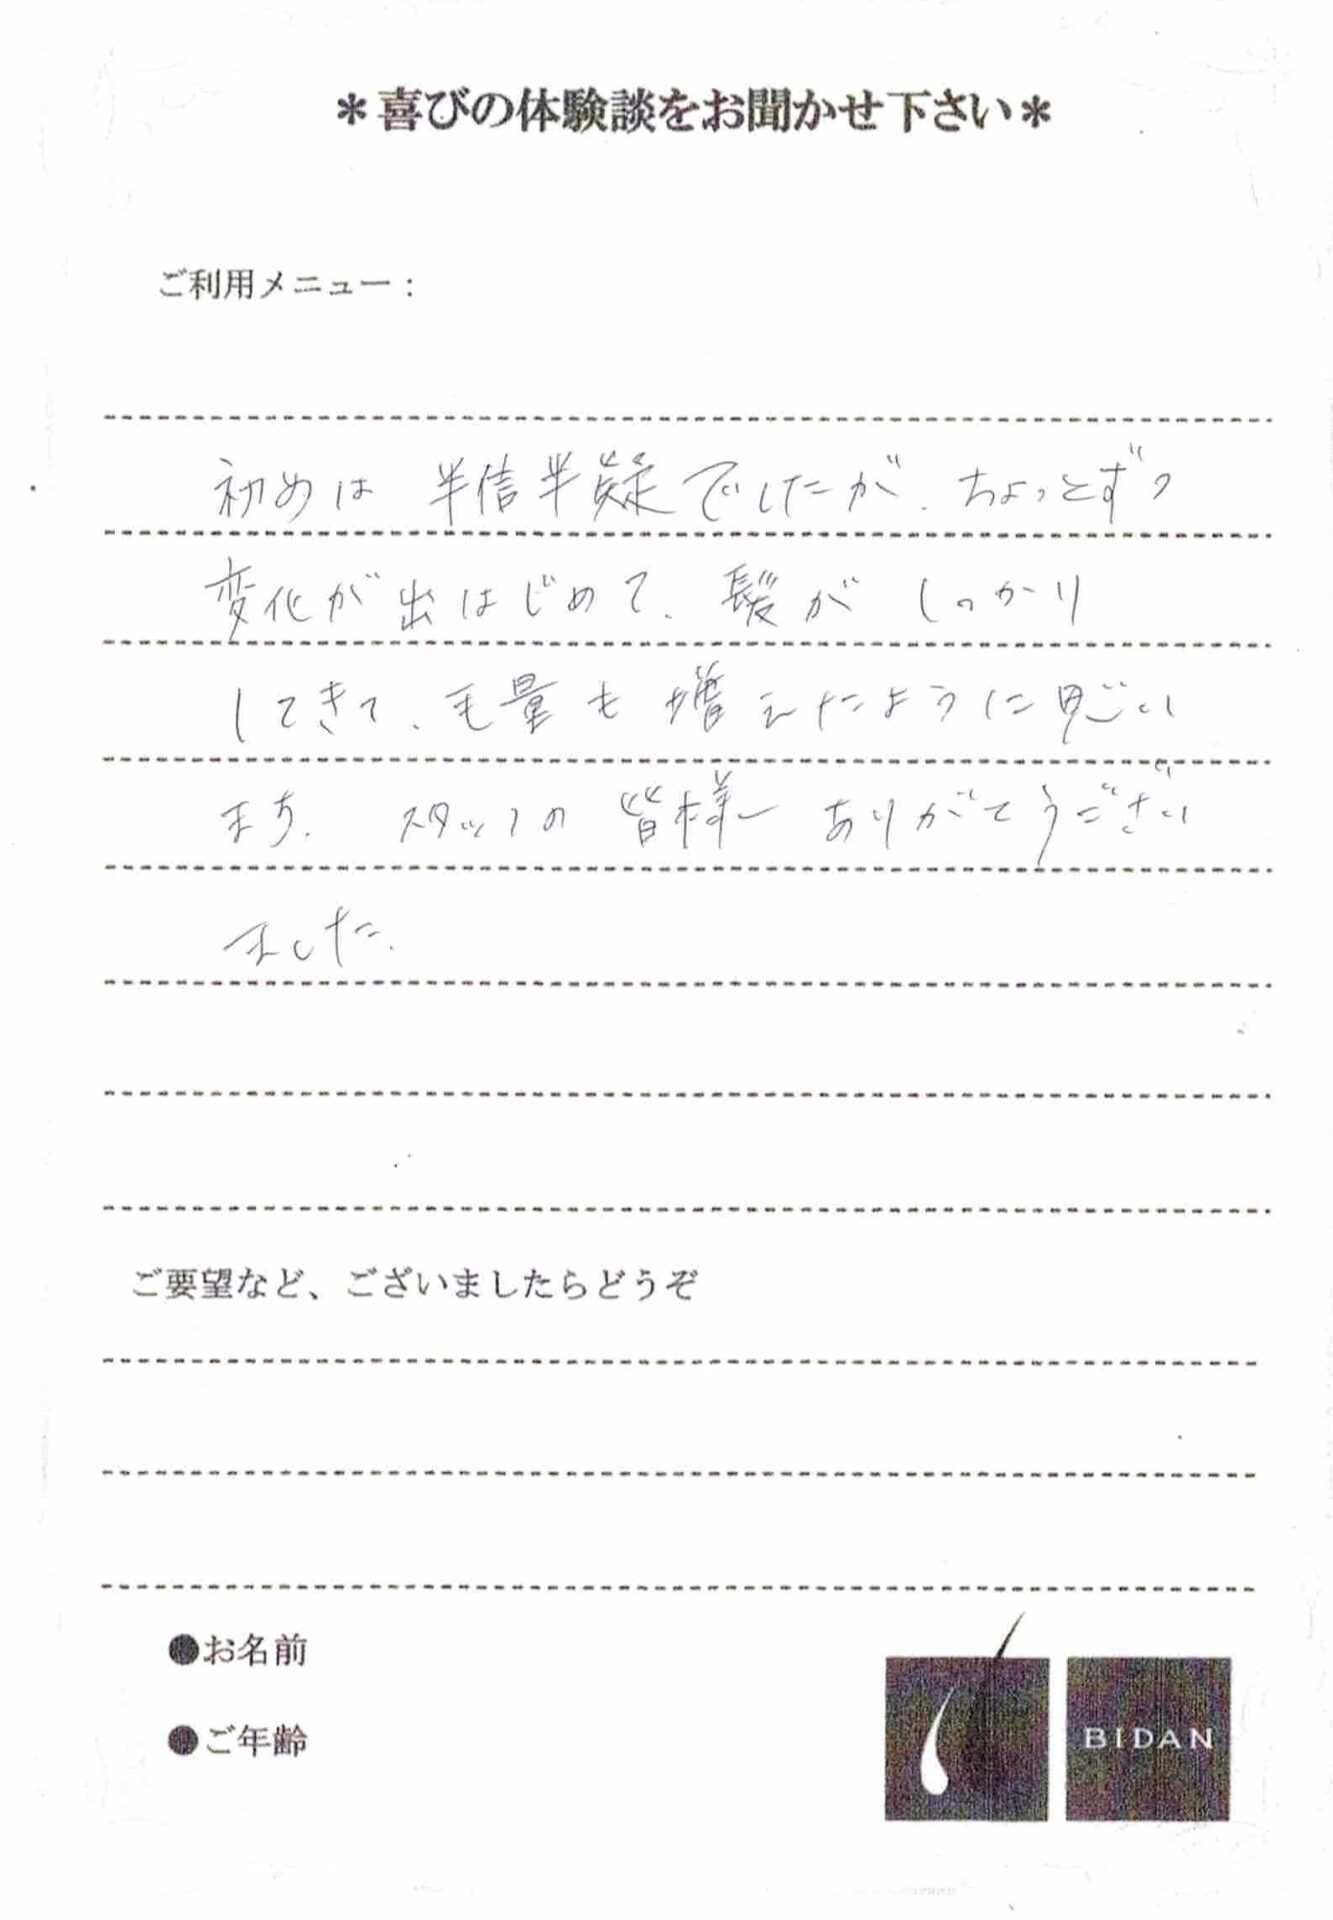 ＊喜びの体験談をお聞かせ下さい＊
ご利用メニュー：
初めは 半信半疑でしたが、ちょっとずつ
変化が出はじめて、髪が しっかり
してきて、毛量も増えたように思い
ます。 スタッフの 皆様 ありがとうござい
ました。
ご要望など、ございましたらどうぞ
●お名前
●ご年齢
BIDAN